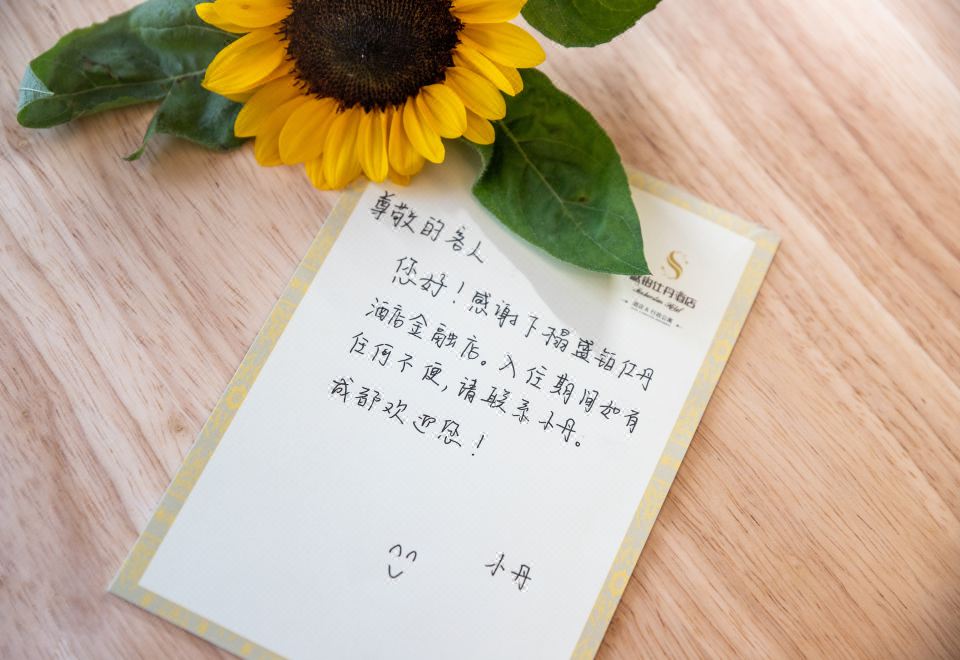 尊敬的客人
您好！感谢下榻盛铂仕丹
酒店金融店。入住期间如有
任何不便，请联系小丹。
成都欢迎您！
小丹
铂仕丹酒店